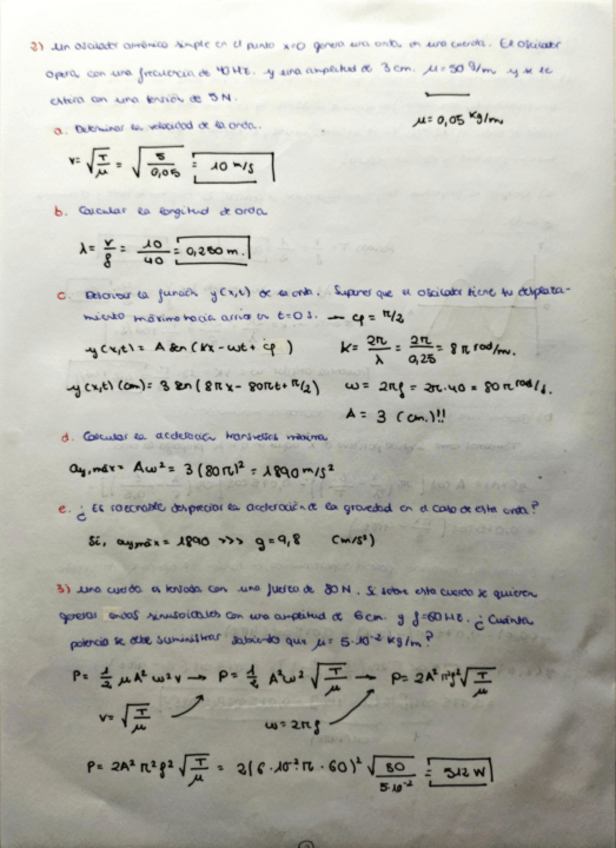 2) Un oscilador armónico simple en el punto x=0 genera una onda en una cuerda. El oscilador
opera con una frecuencia de 40 Hz. y una amplitud de 3 cm. μ=50 g/m y se le
estira con una tensión de 5 N.
μ=0,05 kg/m
a. Determinar la velocidad de la onda.
v= √(T/μ) = √(5/0,05) = 10 m/s
b. Calcular la longitud de onda
λ= v/f = 10/40 = 0,250 m.
c. Determinar la función y(x,t) de la onda. Suponer que el oscilador tiene su desplaza-
miento máximo hacia arriba en t=0 s. → φ = π/2
y(x,t)= A sen (kx - ωt + φ) K= 2π/λ = 2π/0,25 = 8π rad/m.
y(x,t)(cm)= 3 sen (8πx - 80πt + π/2) ω= 2πf = 2π·40 = 80π rad/s.
A= 3 (cm.)!!
d. Calcular la aceleración transversal máxima
ay,máx= Aω² = 3(80π)² = 1890 m/s²
e. ¿Es razonable despreciar la aceleración de la gravedad en el caso de esta onda?
Sí, ay máx = 1890 >>> g=9,8 (m/s²)
3) Una cuerda es tensada con una fuerza de 80N. Si sobre esta cuerda se quieren
generar ondas sinusoidales con una amplitud de 6 cm. y f=60 Hz. ¿Cuánta
potencia se debe suministrar sabiendo que μ= 5·10⁻² kg/m?
P= 1/2 μA²ω²v → P= 1/2 A²ω² √(T/μ) → P= 2A²π²f² √(T/μ)
v= √(T/μ) ω=2πf
P= 2A²π²f² √(T/μ) = 2(6·10⁻²·π·60)² √(80/5·10⁻²) = 512 W